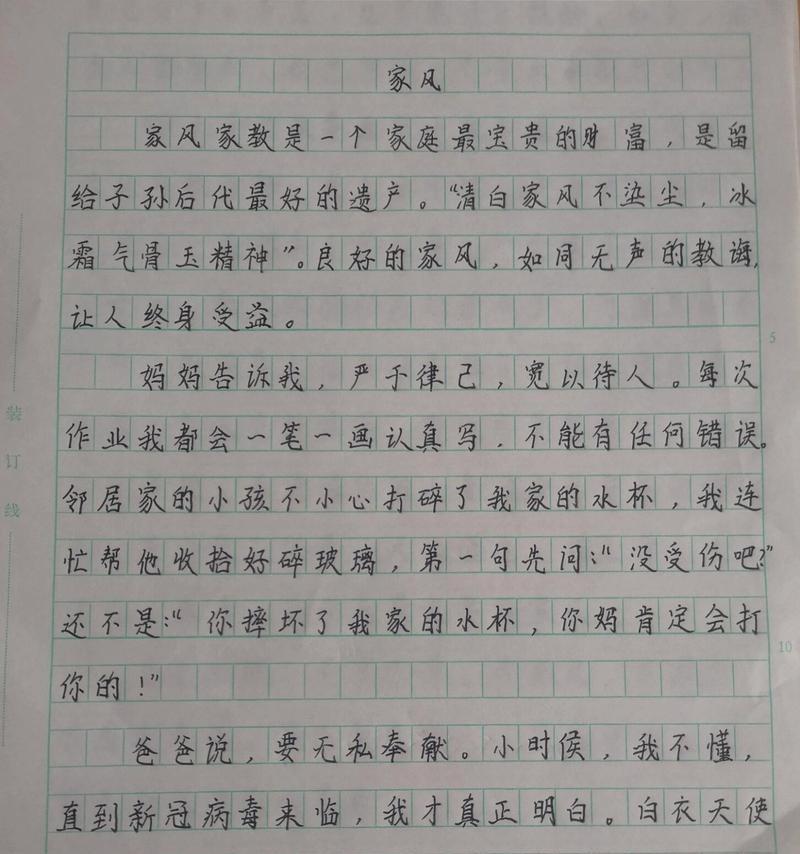 家风
家风家教是一个家庭最宝贵的财富，是留
给子孙后代最好的遗产。“清白家风不染尘，冰
霜气骨玉精神”。良好的家风，如同无声的教诲，
让人终身受益。
5
妈妈告诉我，严于律己，宽以待人。每次
作业我都会一笔一画认真写，不能有任何错误。
邻居家的小孩不小心打碎了我家的水杯，我连
忙帮他收拾好碎玻璃，第一句先问：“没受伤吧？”
还不是：“你摔坏了我家的水杯，你妈肯定会打
10
你的！”
爸爸说，要无私奉献。小时侯，我不懂，
直到新冠病毒来临，我才真正明白。白衣天使
装订线